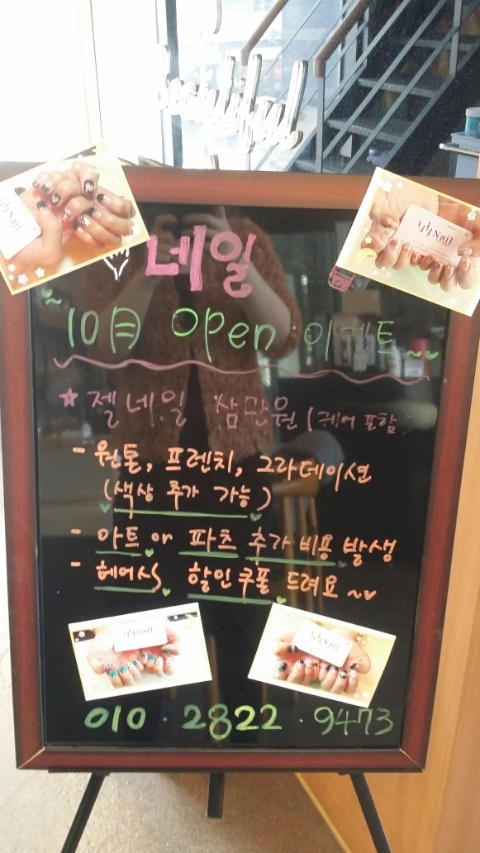 Beautiful
네일
10月 open 이벤트
★ 젤네일 삼만원 (케어 포함)
- 원톤, 프렌치, 그라데이션
(색상 추가 가능)
- 아트 or 파츠 추가 비용 발생
- 헤어시 할인쿠폰 드려요~
010·2822·9473
Nail
Nail
Nail
Nail